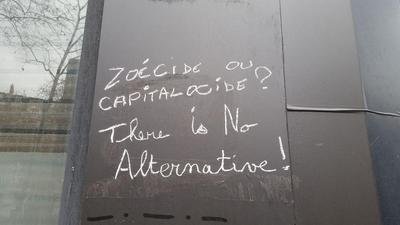 ZOÉCIDE OU
CAPITALOCIDE?
There is No
Alternative!